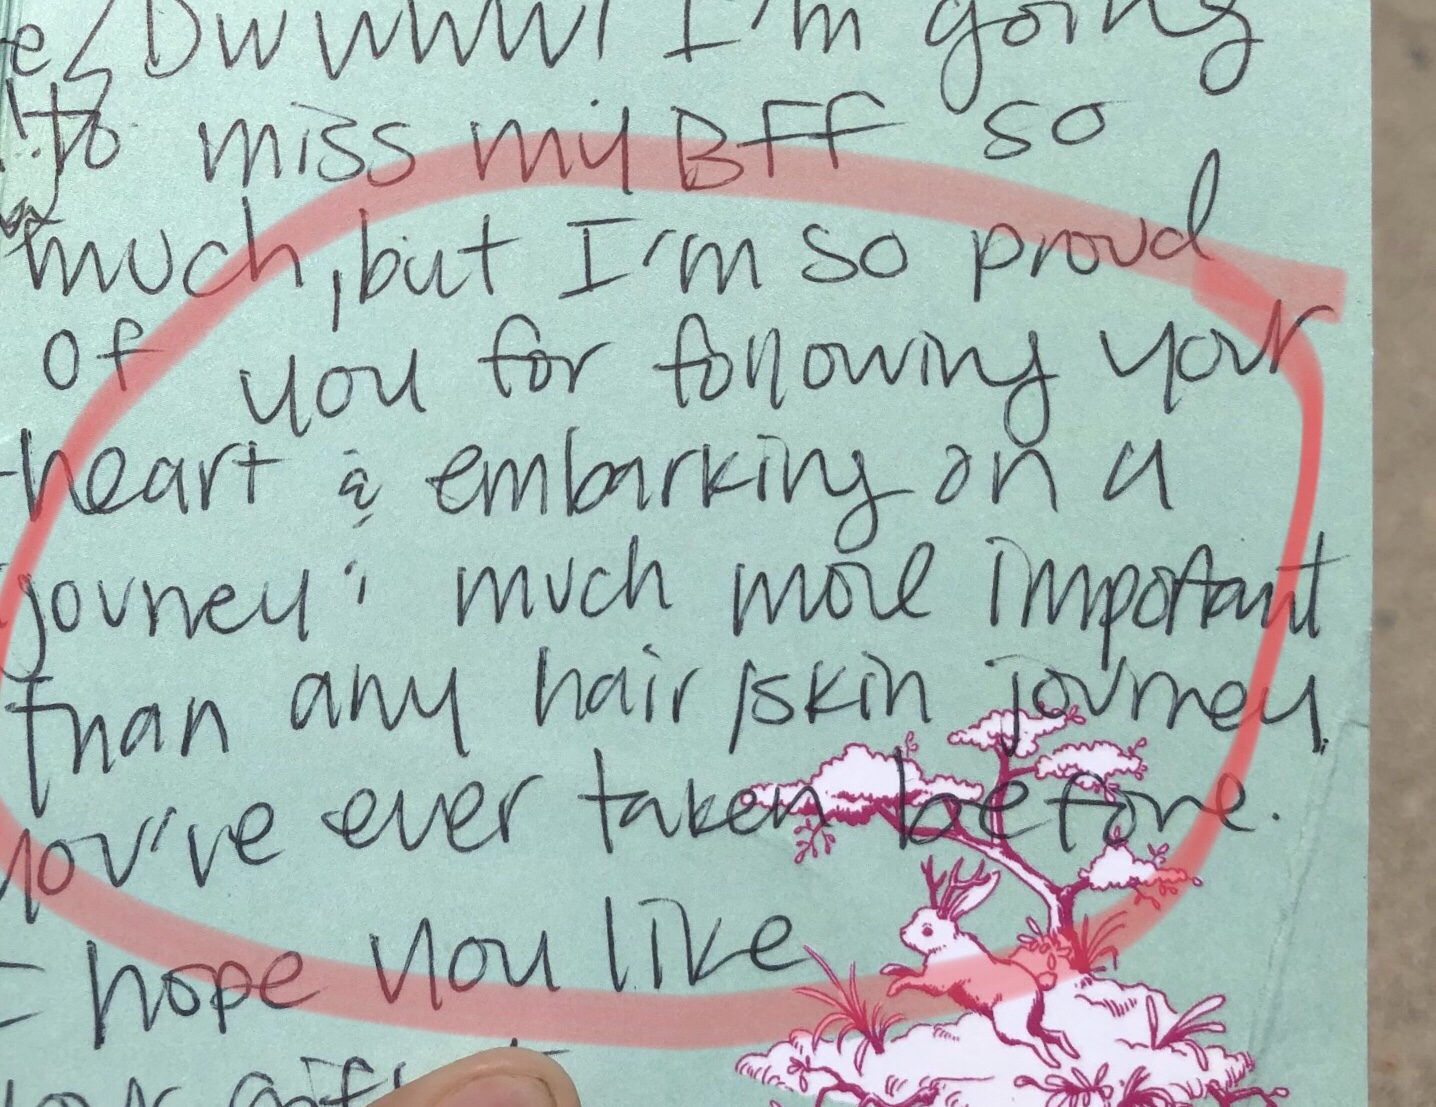 I'm going
to miss my BFF so
much, but I'm so proud
of you for following your
heart & embarking on a
journey; much more important
than any hair/skin journey
you've ever taken before.
I hope you like